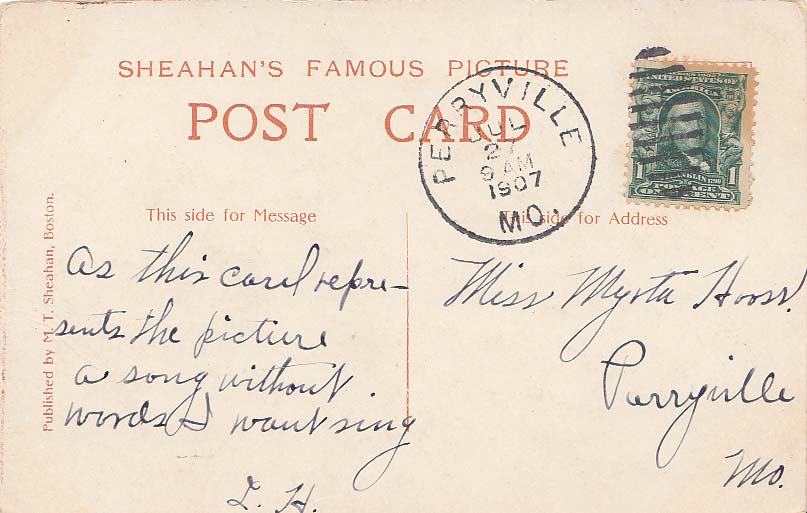 SHEAHAN'S FAMOUS PICTURE
POST CARD
PERRYVILLE
JUL
27
9 AM
1907
MO.
SERIES 1902
UNITED STATES OF
AMERICA
FRANKLIN
1 1
POSTAGE
ONE CENT
This side for Message
This side for Address
Published by M. T. Sheahan, Boston.
As this card repre-
sents the picture
a song without
words I want sing
L. H.
Miss Myrta
Perryville
Mo.